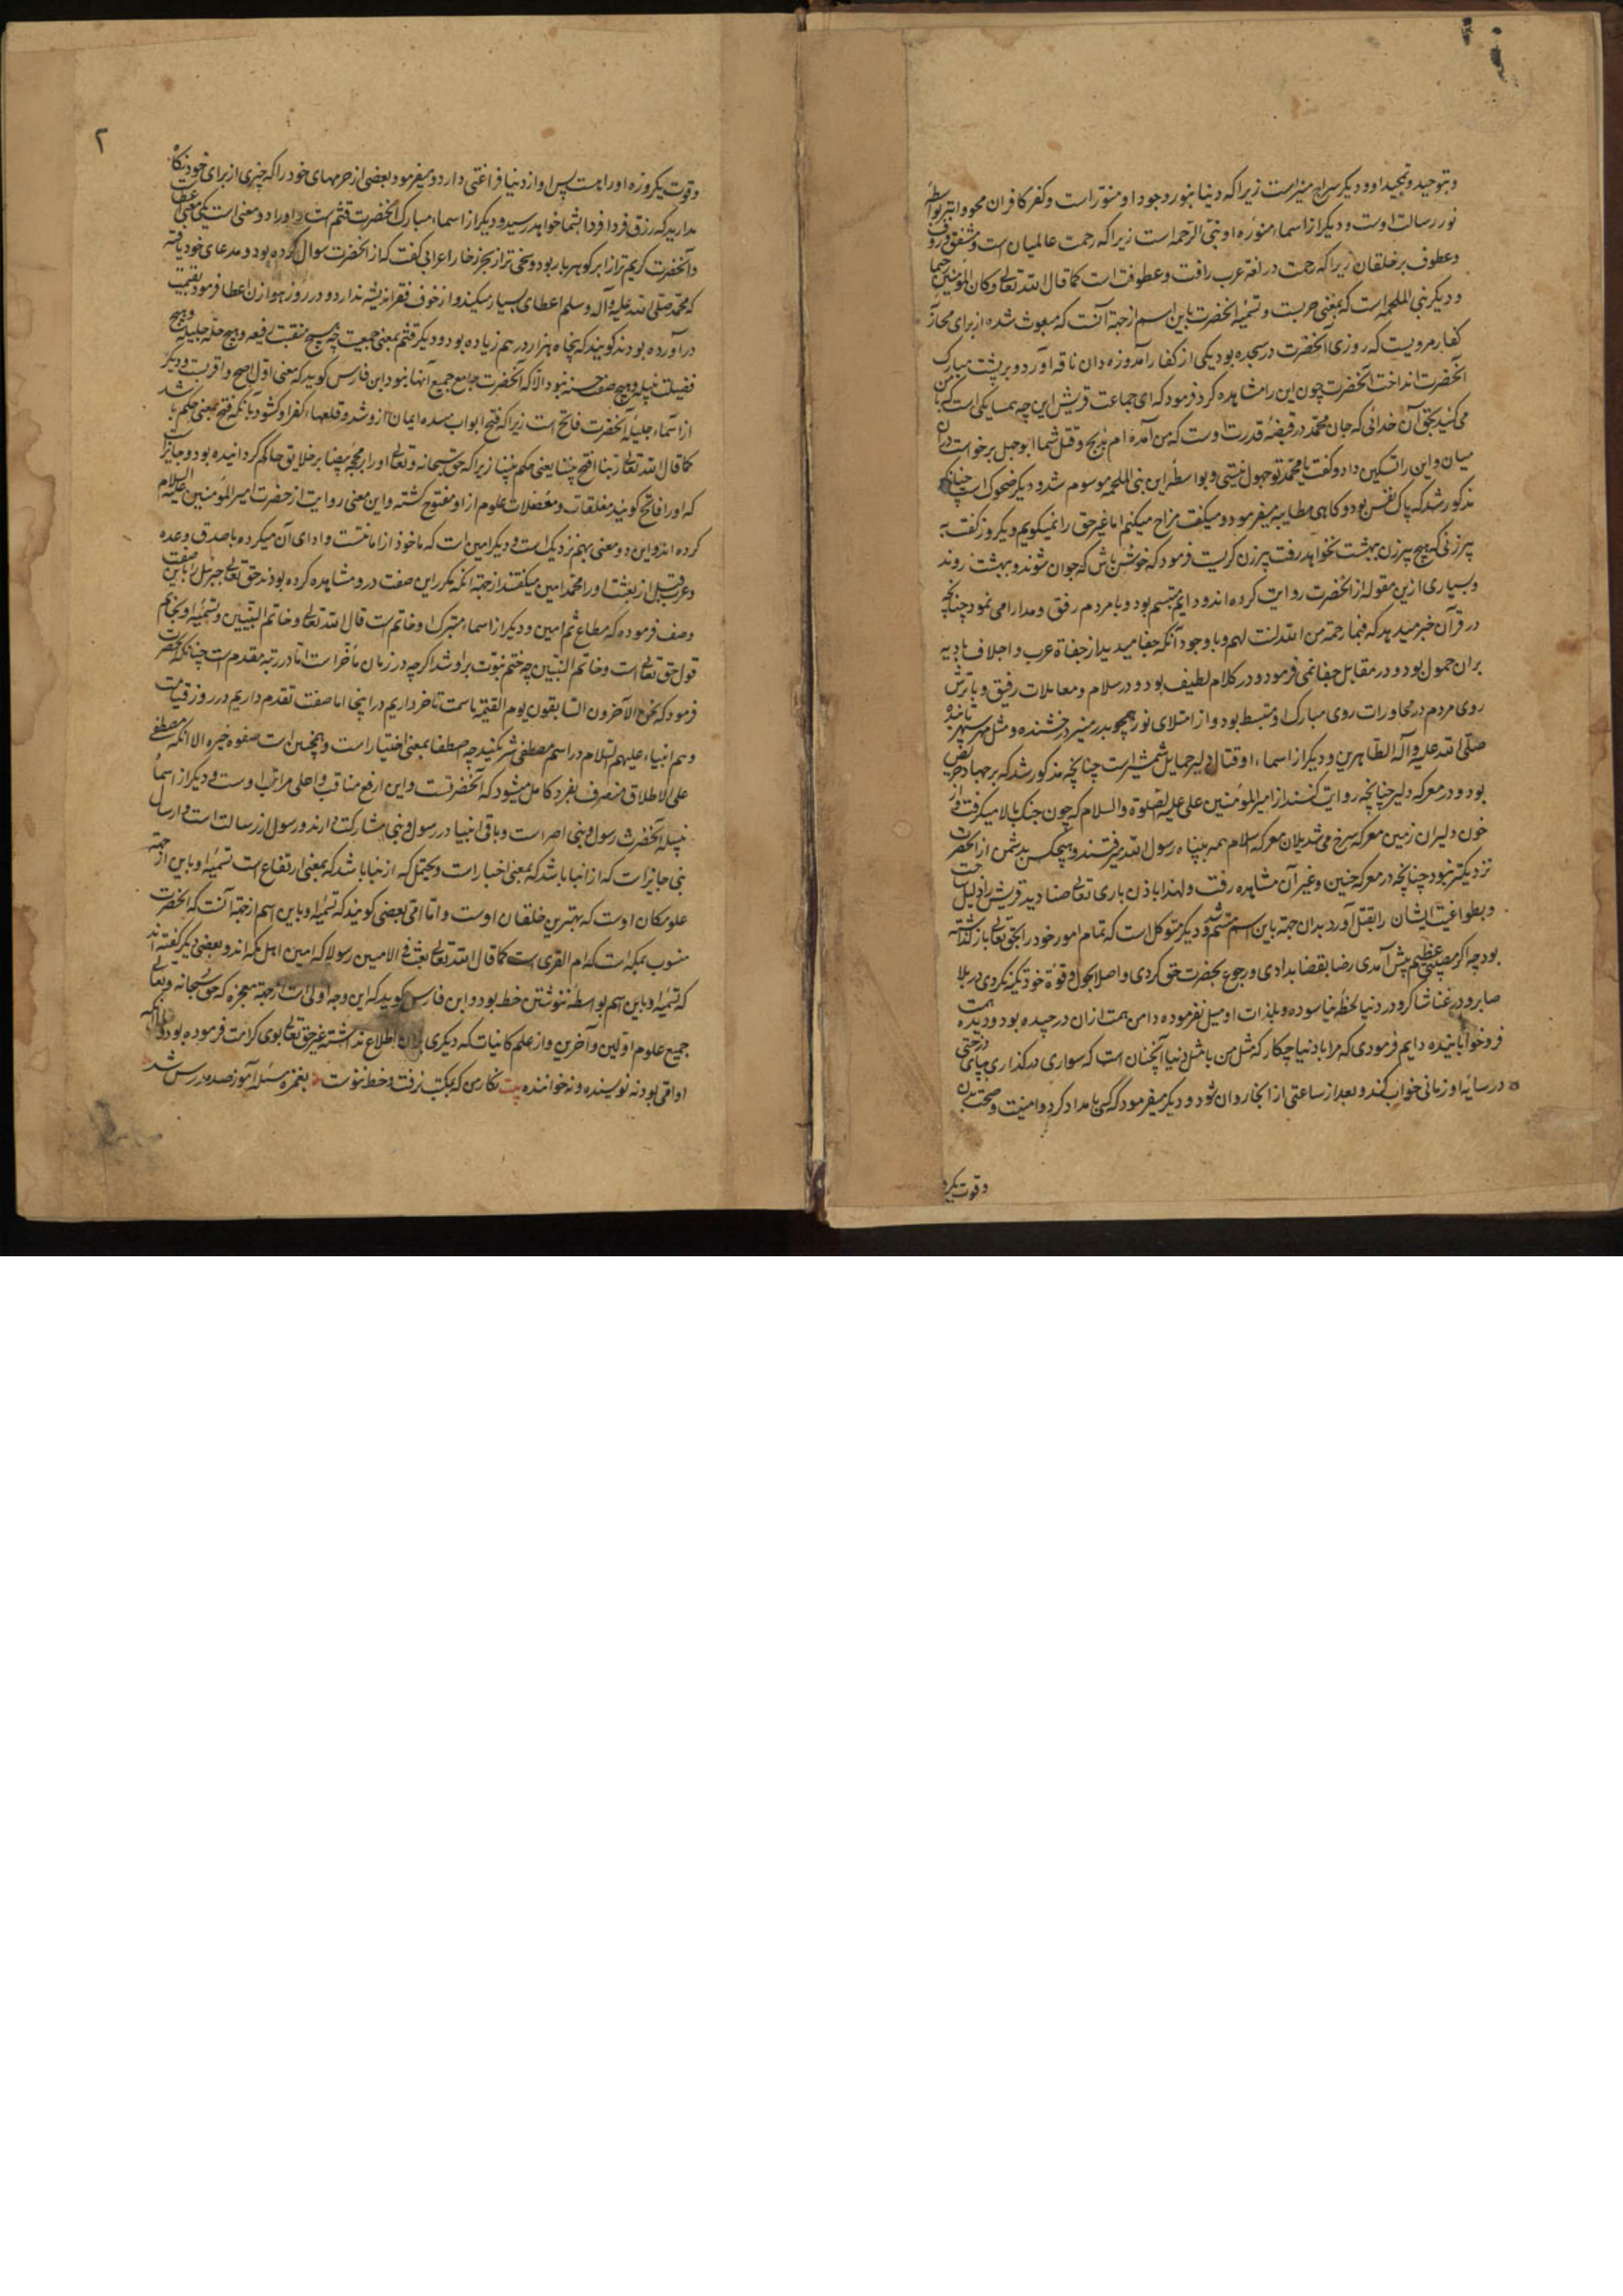 وبتوحید و تمجید او و دیگر سراج منیر است زیرا که دنیا بنور وجود او منور است و کفر کافران محو و ابتر بواسطهٔ
نور رسالت اوست و دیگر از اسماء منوره او نبی الرحمه است زیرا که رحمت عالمیان است و مشفق و رؤف
وعطوف بر خلقان زیرا که رحمت در لغة عرب رافت و عطوفت است کما قال الله تعالی وکان بالمؤمنین رحیما
و دیگر نبی الملحمه است که بمعنی حربست و تسمیهٔ آنحضرت باین اسم از جهة آنست که مبعوث شده از برای محاربه
کفار مرویست که روزی آنحضرت در سجده بود یکی از کفار آمد و زه دان ناقه آورد و بر پشت مبارک
آنحضرت انداخت آنحضرت چون این را مشاهده کرد فرمود که ای جماعت قریش این چه همسایکی است که با من
می کنید بحق آن خدائی که جان محمد در قبضهٔ قدرت اوست که من آمده ام بذبح و قتل شما ابوجهل برخواست در آن
میان و این را تسکین داد و گفت یا محمد تو جهول نیستی و بواسطهٔ این بنی الملحمه موسوم شد و دیگر ضحوک است چنانکه
مذکور شد که پاک نفس بود و کاهی مطایبه میفرمود و میکفت مزاح میکنم اما غیر حق را نمیکویم و یکروز گفت به
پیرزنی که هیچ پیرزن ببهشت نخواهد رفت پیرزن گریست فرمود که خوش باش که جوان شوند و ببهشت روند
و بسیاری ازین مقوله از آنحضرت روایت کرده اند و دایم متبسم بود و با مردم رفق و مدارا می نمود چنانچه
در قرآن خبر میدهد که فبما رحمة من الله لنت لهم و با وجود آنکه جفا میدید از جفاة عرب و اجلاف بادیه
بران حمول بود و در مقابل جفا نمی فرمود و در کلام لطیف بود و در سلام و معاملات رفیق و با ترش
روی مردم در محاورات روی مبارک او منبسط بود و از امتلای نور همچو بدر منیر درخشنده و مثل مهر سپهر تابنده
صلی الله علیه وآله الطاهرین و دیگر از اسماء او قتال دلیر حمایل شمشیر است چنانچه مذکور شد که بر جهاد حریص
بود و در معرکه دلیر چنانچه روایت کنند از امیرالمؤمنین علی علیه الصلوة والسلام که چون جنک بالا میکرفت و از
خون دلیران زمین معرکه سرخ می شد یلان معرکه اسلام همه بپناه رسول الله میرفتند و هیچکس بدشمن از آنحضرت
نزدیکتر نبود چنانچه در معرکه حنین و غیر آن مشاهده رفت و لهذا باذن باری تعالی صنادید قریش را ذلیل ساخت
و بطواغیت ایشان را بقتل آورد بدان جهة باین اسم متسم شد و دیگر متوکل است که تمام امور خود را بحق تعالی باز کذاشته
بود چه اکر مصیبتی عظیم پیش آمدی رضا بقضا بدادی و رجوع بحضرت حق کردی و اصلا بحول و قوة خود تکیه نکردی در بلا
صابر و در غنا شاکر و در دنیا لحظهٔ نیاسوده و بلذات او میل نفرموده دامن همت ازان درچیده بود و دیدهٔ همت
فرو خوابانیده دایم فرمودی که مرا با دنیا چکار که مثل من با مثل دنیا آنچنان است که سواری در کذار بپای درختی
در سایهٔ او زمانی خواب کند و بعد از ساعتی از انجا روان شود و دیگر میفرمود که کسی بامداد کرد و امنیت و صحت بدن
و قوت یکرو
٢
وقوت یکروزه او را هست پس او از دنیا فراغتی دارد و میفرمود بعضی از حرمهای خود را که چیزی از برای خود نکاه
مدارید که رزق فردا فردا بشما خواهد رسید و دیگر از اسماء مبارک آنحضرت قثم است و او را دو معنی است یکی بمعنی عطاست
و آنحضرت کریم تر از ابر کوهر بار بود و سخی تر از بحر زخار اعرابی گفت که از آنحضرت سوال کرده بود و مدعای خود یافته
که محمد صلی الله علیه وآله وسلم اعطای بسیار میکند و از خوف فقر اندیشه ندارد و در روز هوازن اعطا فرمود بقیمت
درآورده بودند کویند که پنجاه هزار درهم زیاده بود و دیگر قثم بمعنی جمعیت چه هیچ منقبت رفیعه و هیچ خلّهٔ جلیله و هیچ
فضیلت نبیله و هیچ صفت حسنه نبود الا که آنحضرت جامع جمیع آنها بود ابن فارس کوید که معنی اول اصح و اقربست و دیگر
از اسماء جلیلهٔ آنحضرت فاتح است زیرا که فتح ابواب مسدهٔ ایمان ازو شد و قلعهاء کفر او کشود یا آنکه فتح بمعنی حکم باشد
کما قال الله تعالی ربنا افتح بیننا یعنی حکم بیننا زیرا که حق سبحانه و تعالی او را بر محجّهٔ بیضا بر خلایق حاکم گردانیده بود و جایز است
که او را فاتح کویند مغلقات و معضلات علوم از او مفتوح کشته و این معنی روایت از حضرت امیرالمؤمنین علیه السلام
کرده اند و این دو معنی بهم نزدیک است و دیگر امین است که ماخوذ از امانتست و ادای آن میکرده با صدق وعده
و عرب قبل از بعثت او را محمد امین میکفتند از جهة انکه مکرر این صفت درو مشاهده کرده بودند حق تعالی جبرئیل را باین صفت
وصف فرموده که مطاع ثم امین و دیگر از اسماء متبرک او خاتم است قال الله تعالی و خاتم النبیین و تسمیهٔ او بخاتم
قول حق تعالی است و خاتم النبیین چه ختم نبوت براو شد اکرچه در زمان مأخر است اما در رتبه مقدم است چنانکه آنحضرت
فرمود که نحن الآخرون السابقون یوم القیمة یا سمت تاخر داریم در اینجا اما صفت تقدم داریم در روز قیامت
و هم انبیاء علیهم السلام در اسم مصطفی شریکند چه اصطفا بمعنی اختیار است و همچنین است صفوه خیره الا آنکه مصطفی
علی الاطلاق منصرف بفرد کامل میشود که آنحضرتست و این ارفع مناقب و اعلی مراتب اوست و دیگر از اسماء
نبیلهٔ آنحضرت رسول و نبی امی است و باقی انبیا در رسول و نبی مشارکت دارند و رسول از رسالت است و ارسال
نبی جایز است که از انبا باشد که بمعنی اخبار است و یحتمل که از نبا باشد که بمعنی ارتفاع است تسمیهٔ او باین از جهة
علو مکان اوست که بهترین خلقان اوست و اما امی بعضی کویند که تسمیهٔ او باین اسم از جهة آنست که آنحضرت
منسوب بمکه است که ام القری است کما قال الله تعالی بعث فی الامیین رسولا که امین اهل مکه اند و بعضی دیگر گفته اند
که تسمیهٔ او باین اسم بواسطهٔ ننوشتن خط بود و ابن فارس کوید که این وجه اولی است از جهة معجزه که حق سبحانه و تعالی
جمیع علوم اولین و آخرین و از علم کائنات که دیگری بران اطلاع نداشته غیر حق تعالی بوی کرامت فرموده بود و با آنکه
او امی بود نه نویسنده و نه خواننده بیت نکار من که بمکتب نرفت و خط ننوشت بغمزه مسئله آموز صد مدرس شد